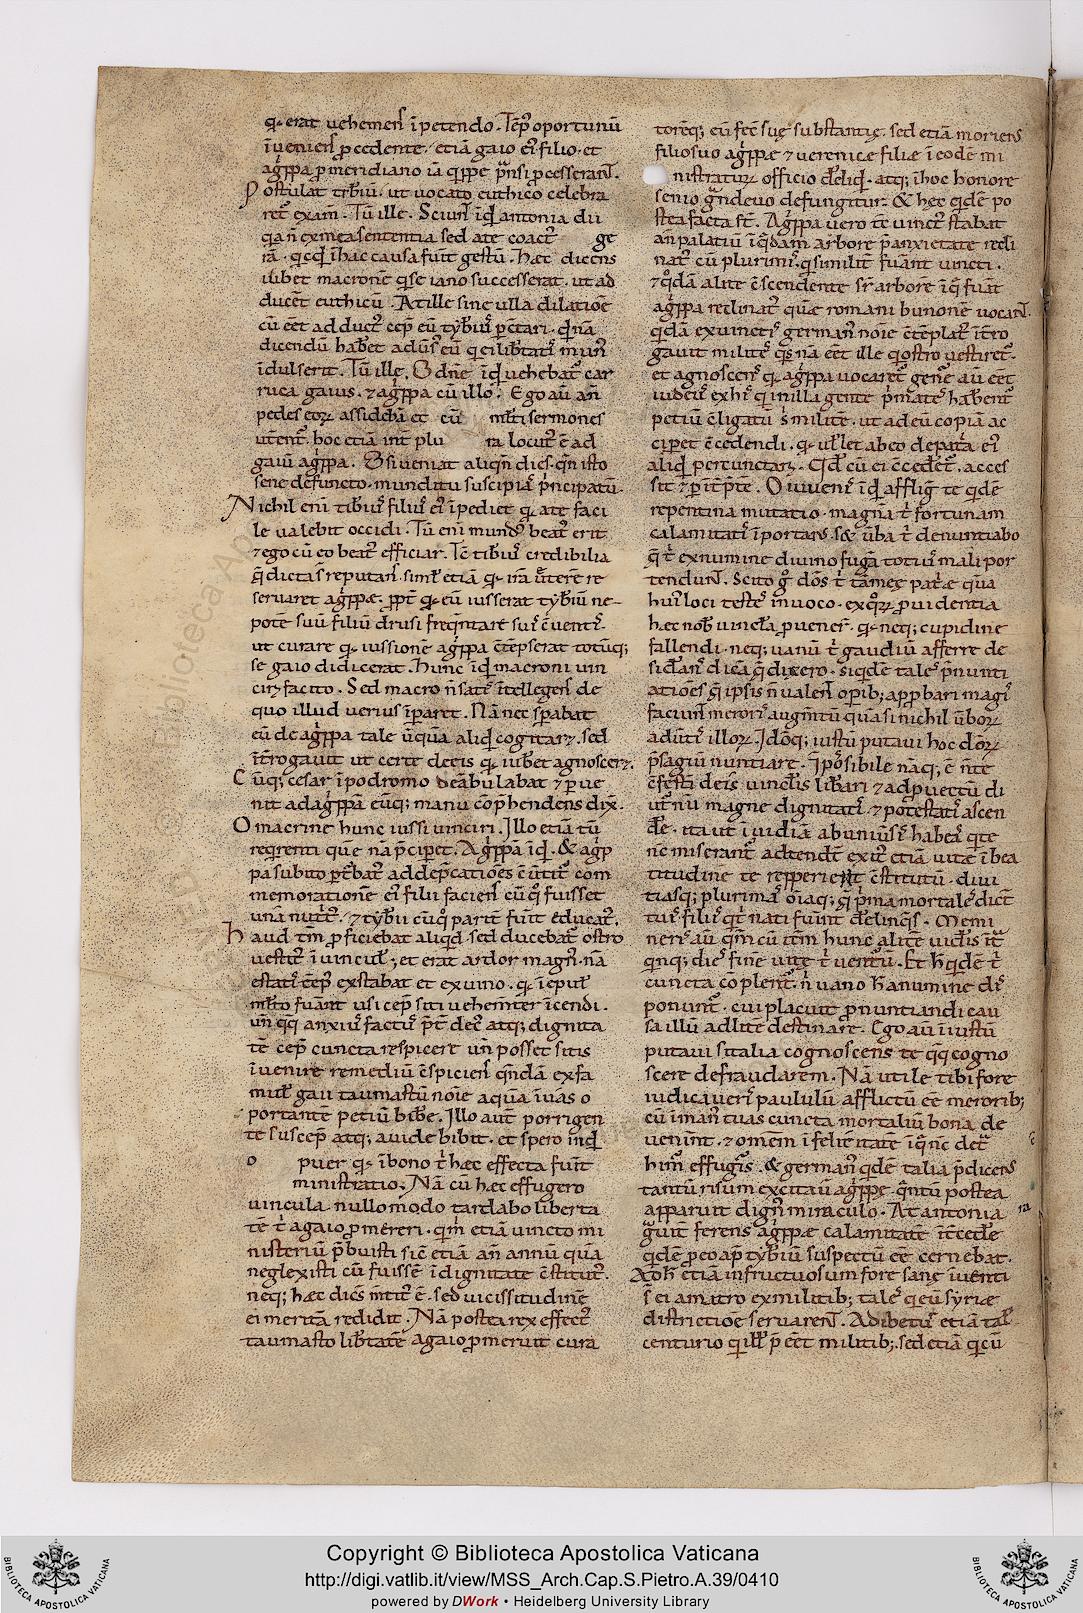 q̨ erat uehemens ī petendo. Tēp̄ oportunū
īueniens p cedente. etiā gaio ei filio. et
agppa p meridiano iā qippe pransi pcesserant.
Postulat tibiū. ut uocato euthico celebra
ret exam̄. Tū ille. Sciunt inqd antonia dii
qa n̄ ex mea sententia sed a te coact ge
rā. qcqd ī hac causa fuit gestū. hæc dicens
iubet macronē q seiano successerat. ut ad
ducet euthicū. At ille sine ulla dilatiōe
cū eet adduct cep eū tyb̄iu pctari. qd nā
dicendū haberet aduersū eū q ei libtatis mun
īdulserit. Tū ille. O dn̄e inqd uehebatur car
ruca gaius. & agppa cū illo. Ego aū an̄
pedes eoR assidebā et cū mlti sermones
uerterent. hoc etiā int plu ra locut ē ad
gaiū agppa. O si ueniat aliqn̄ dies. qn̄ isto
sene defuncto. mundi tu suscipias pncipatū.
Nichil eni tibius filius ei īpediet q̨ a te faci
le ualebit occidi. Tū eni mundus beatus erit
& ego cū eo beatus efficiar. Tc̄ tibius credibilia
q̄ dicta s̄ reputans. simul etiā q̨ irā ueterē re
seruaret agppæ. ppt q̨ eū iusserat tyb̄iū ne-
potē suū filiū drusi freqntare sui cuentis.
ut curare q̨ iussione agppa cōtēpserat totūq;
se gaio didicerat. hunc inqd macroni uin
ciri facito. Sed macro n̄ satis intellegens de
quo illud uerius ipararet. Nā nec sperabat
eū de agppa tale unquā aliqd cogitare. sed
īterrogauit ut certe dećis q̨ iubet agnoscere.
Cunq; cesar ī podromo deābulabat & perue
nit ad agppā eūq; manu cōp̄hendens dix.
O macrine hunc iussi uinciri. Illo etiā tū
reqrenti quē nā pcipet. Agppā inqd. & agp
pa subito perturbatus ad depcatioēs cūtitur com
memorationē ei filii faciens cū q fuisset
una nutritus. & tyb̄ii cuius partē fuit educat.
Haud tm̄ pficiebat aliqd sed ducebatur ostro
uestitus ī uinculis; et erat ardor magnus. nā
estatis tēp̄ exstabat et ex uino. q̨ ī epulis
mlto fuerant usi cep siti uehemter īcendi.
un̄ qq anxius factus pter decus atq; dignita
tē cep cuncta respicere un̄ posset sitis
īuenire remediū cspiciens qndā ex fa
mulis gaii taumastū noīe aquā ī uas o
portantē petiū bibere. Illo aut̄ porrigen
te suscep atq; auide bibit. et spero inqd
o puer q̨ ī bono t hæc effecta fuit
ministratio. Nā cū hæc effugero
uincula. nullo modo tardabo liberta
tē t a gaio pmereri. qm̄ etiā uincto mi
nisteriū pbuisti sic etiā an̄ annū quā
neglexisti cū fuissē ī dignitate cstitut.
neq; hæc dicens mtit ē. sed uicissitudinē
ei meritā reddidit. Nā postea rex effectus
taumasto libtatē a gaio pmeruit curā
torēq; eū fec suę substantię. sed etiā moriens
filio suo agppæ & uerenicæ filiæ ī eodē mi
nistraturu officio dereliqd. atq; ī hoc honore
senio grandeuo defungitur. & hęc qdē po
stea facta sunt. Agppa uero tc̄ uinctus stabat
an̄ palatiū ī qdam arbore p anxietate recli
natus cū plurimis. q similit fuant uincti.
& qdā alite cscendente sr arborē ī q fuat
agppa reclinatus quæ romani bunonē uocant.
qdā ex uinctis germanus noīe cteplatus inter
gauit militē. qs nā eet ille q ostro uestiret.
et agnoscens q̨ agppa uocaret. genę aū eet
iudeus ex his q in illa gente primates habent.
petiū cligatū s̄ militē. ut ad eū copiā ac
ciperet cedendi. q̨ uellet ab eo de patria ei
aliqd percunctari. Qd cū ei ccederet. acces
sit & p intp̄te. O iuuenis inqd affligit te qdē
repentina mutatio. magnā t fortunam
calamitatis īportans. sed uerba t denuntiabo
q̄ t ex numine diuino fugā totius mali por
tendunt. Scito g dos t tā meę patriæ quā
huius loci testes inuoco. ex quoR prouidentia
hæc nobis uincla puenere. q̨ neq; cupidine
fallendi. neq; uanū t gaudiū afferre de
siderans dicā q̄ dixero. siqdē tales pnunti
atioēs q̄ ipsis n̄ ualent operib; approbari magis
faciunt merores augmtū quasi nichil uerboR
aduentis illoR. Idōq; iustū putaui hoc deoR
psagiū nuntiare. Impossibile nāq; ē n̄ te
cfestī de eis uinclis librari & ad puectū di
uturnū magne dignitatis & potestatis ascen
dere. ita ut ī uidiā ab uniuersis habeas q te
nc̄ miserantur. adtendet exitus etiā uitæ ī bea
titudine te repperient cstitutū. diui
tiasq; plurimas oīaq; q̄ prima mortalē dicet
tuis filiis qi t nati fuerint derelinqs. Memi
neris aū qm̄ cū iterū hunc alitē uideris intra
qnq; dies fine uitę t uenturū. Et h̄ qdē t
cuncta coplentur. n̄ uano h̄ a numine dis
ponuntur. cui placuit pronuntiandi cau
sa illū ad litē destinare. Ego aū ī iustū
putaui si talia cognoscens te qq cogno
scere defraudarem. Nā utile tibi fore
iudicaueris paululū afflictū ee meroribus;
cū ī manus tuas cuncta mortaliū bona de
uenint. & omem ī felicitatē ī q nc̄ detur
himus effugimus. & germanus qdē talia pdicens
tantū risum excitaū agppę. qntū postea
apparuit dignus miraculo. At antonia
grauit ferens agppæ calamitatē intercede
qdē p eo ap tyb̄iū suspectū ee cernebat.
Ad h̄ etiā infructuosum fore sanę iuenti
s̄ ei a macro ex militib; tales q eū syriæ
districtiōe seruarent. Adibetur etiā talis
centurio q illis p eet militib; sed etiā q cū
Copyright © Biblioteca Apostolica Vaticana
http://digi.vatlib.it/view/MSS_Arch.Cap.S.Pietro.A.39/0410
powered by DWork • Heidelberg University Library